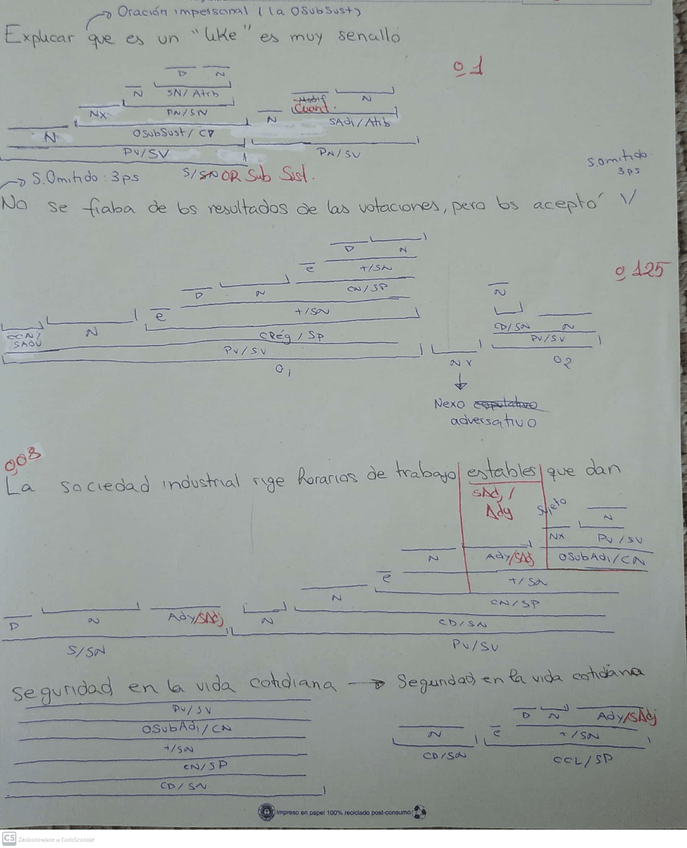 Oración impersonal (la OSubSust)
Explicar que es un "like" es muy senallo
0 1
D N
N SN/Atrib N
Nx PN/SN Cuant.
N OSubSust/CD N SAdj/Atrib
PV/SV PN/SV
S/SN OR Sub Sust.
S.Omitido: 3ps
S.Omitido 3ps
No se fiaba de los resultados de las votaciones, pero los aceptó
D N
e t/SN
0,125
D N CN/SP N
e t/SN CD/SN N
CCN/SAdv N CRég/SP PV/SV
PV/SV O2
O1 NX
Nexo copulativo
adversativo
0,08
La sociedad industrial rige horarios de trabajo estables que dan
SAdj/Ady
Sujeto N
NX PV/SV
N Ady/SAdj OSubAdj/CN
e t/SN
N CN/SP
D N Ady/SAdj N CD/SN
S/SN PV/SV
seguridad en la vida cotidiana → Seguridad en la vida cotidiana
PV/SV
OSubAdj/CN D N Ady/SAdj
t/SN N e t/SN
CN/SP CD/SN CCL/SP
CD/SN
Impreso en papel 100% reciclado post-consumo
CS Zeskanowane w CamScanner